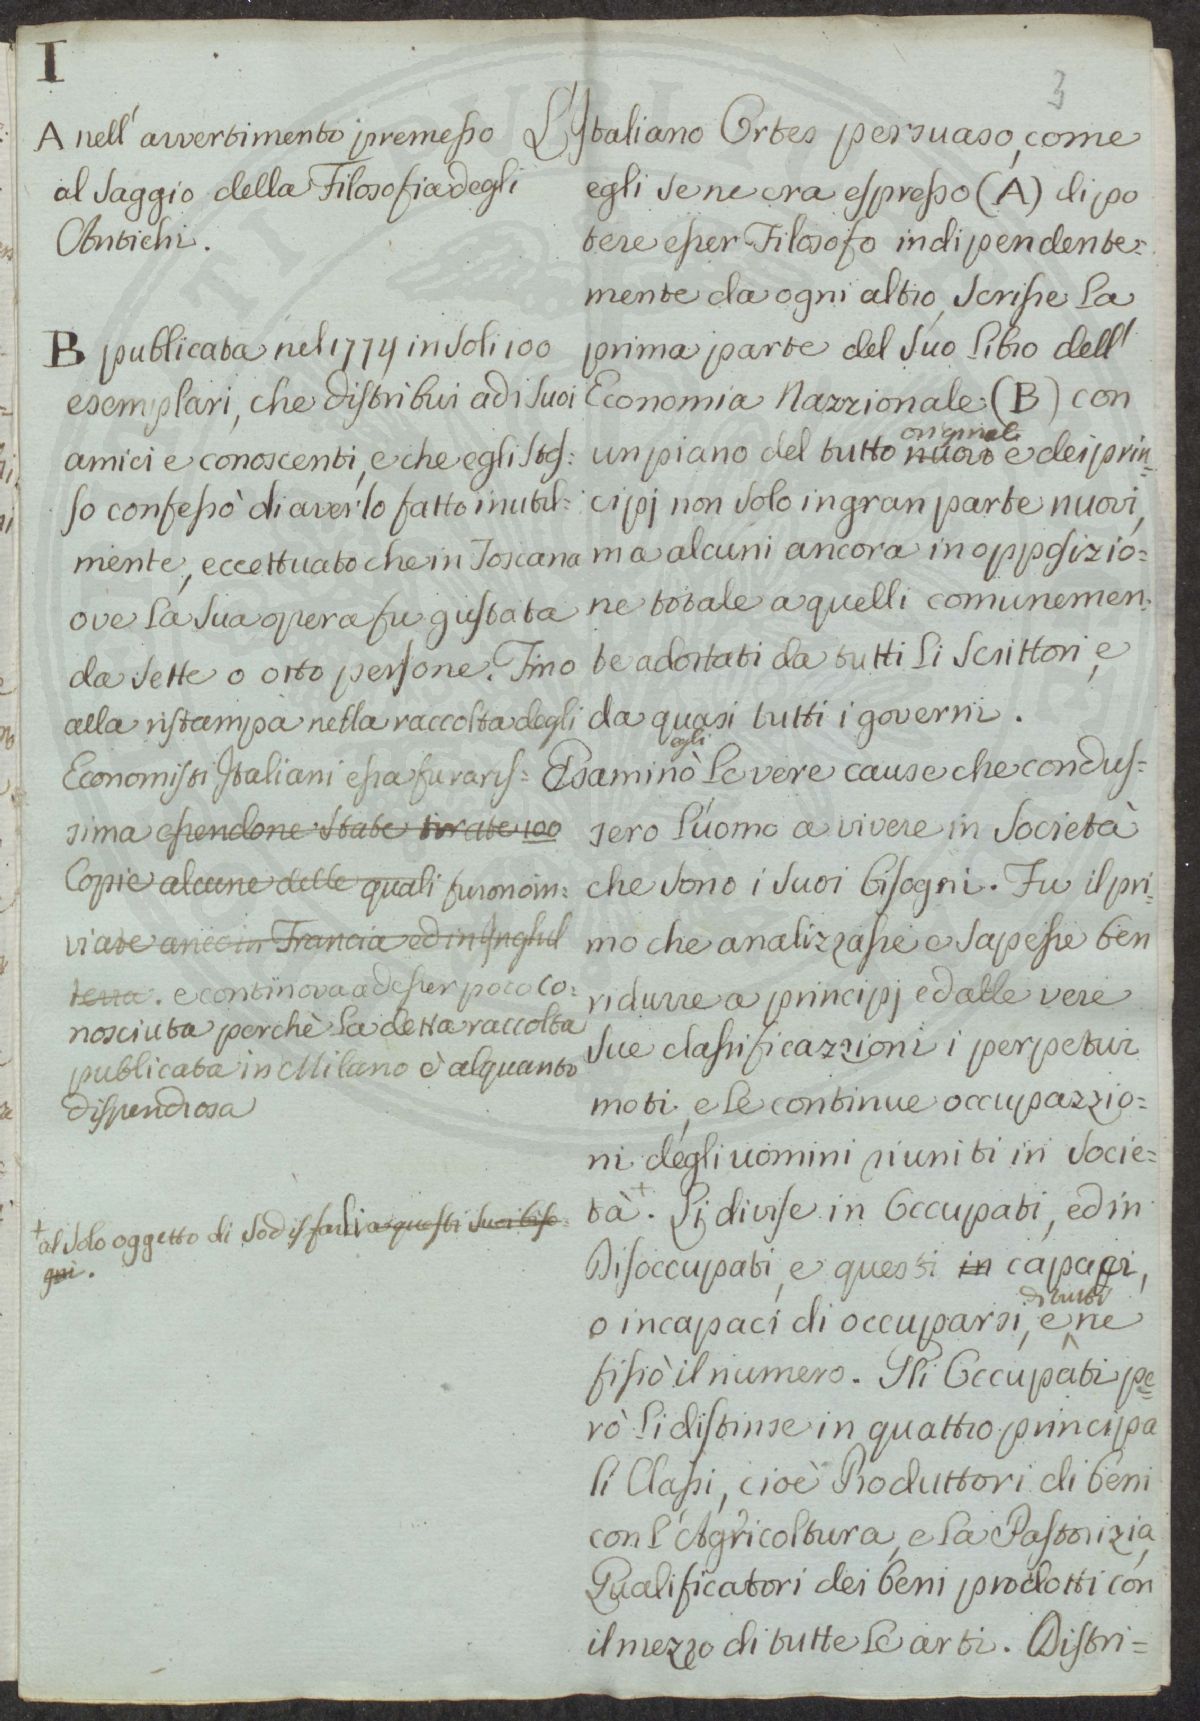 I
3
A nell' avvertimento premesso
al Saggio della Filosofia degli
Antichi.
B publicata nel 1774 in soli 100
esemplari, che distribuì ad i suoi
amici e conoscenti, e che egli stes=
so confessò di averlo fatto inutil=
mente, eccettuato che in Toscana
ove la sua opera fu gustata
da sette o otto persone. Fino
alla ristampa nella raccolta degli
Economisti Italiani essa fu raris=
sima essendone state tirate 100
Copie alcune delle quali furono in=
viate anco in Francia ed in Inghil
terra. e continova ad esser poco co=
nosciuta perchè la detta raccolta
publicata in Milano è alquanto
dispendiosa
+ al solo oggetto di sodisfarli a questi suoi biso=
gni.
L'Italiano Ortes persuaso, come
egli se ne era espresso (A) di po
tere esser Filosofo indipendente=
mente da ogni altro, scrisse la
prima parte del suo libro dell'
Economia Nazzionale (B) con
originale
un piano del tutto nuovo e dei prin=
cipj non solo in gran parte nuovi,
ma alcuni ancora in opposizio=
ne totale a quelli comunemen=
te adottati da tutti li scrittori, e
da quasi tutti i governi.
egli
Esaminò le vere cause che condus=
sero l'uomo a vivere in Società
che sono i suoi bisogni. Fu il pri=
mo che analizzasse e sapesse ben
ridurre a principj ed alle vere
sue classificazzioni i perpetui
moti, e le continue occupazzio=
ni degli uomini riuniti in Socie=
tà+. Li divise in Occupati, ed in
Disoccupati, e questi in capaci,
di tutti
o incapaci di occuparsi, e ne
fissò il numero. Gli Occupati pe=
rò li distinse in quattro principa
li Classi, cioè Produttori di beni
con l'Agricoltura, e la Pastorizia,
Qualificatori dei beni prodotti con
il mezzo di tutte le arti. Distri=